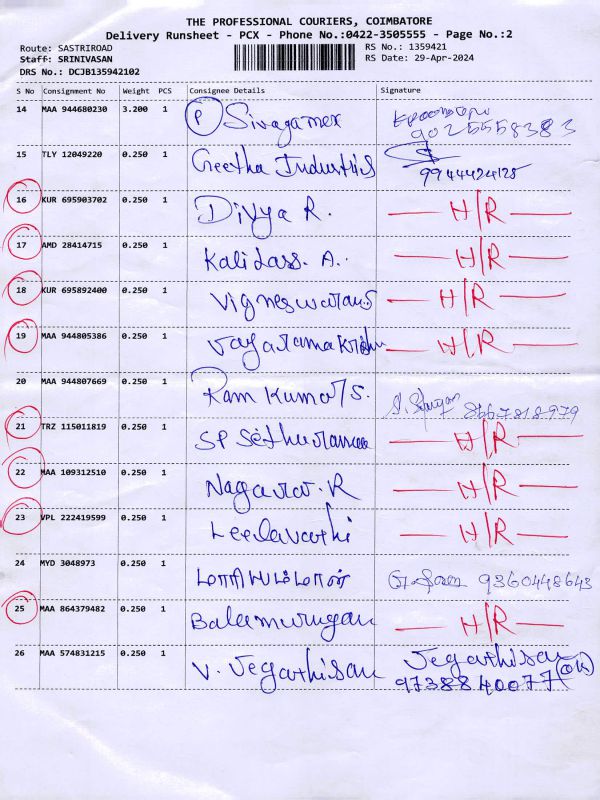 THE PROFESSIONAL COURIERS, COIMBATORE
Delivery Runsheet - PCX - Phone No.:0422-3505555 - Page No.:2
Route: SASTRIROAD
Staff: SRINIVASAN
DRS No.: DCJB135942102
RS No.: 1359421
RS Date: 29-Apr-2024
S No Consignment No Weight PCS Consignee Details Signature
14 MAA 944680230 3.200 1 P Sivagamex
9025558383
15 TLY 12049220 0.250 1 Geetha Industris
9944424125
16 KUR 695903702 0.250 1 Divya R. H/R
17 AMD 28414715 0.250 1 Kalidass. A. H/R
18 KUR 695892400 0.250 1 Vigneswaran S H/R
19 MAA 944805386 0.250 1 H/R
20 MAA 944807669 0.250 1 Ram Kumar S. 8667818979
21 TRZ 115011819 0.250 1 SP Sethuraman H/R
22 MAA 109312510 0.250 1 Nagaraj. R H/R
23 VPL 222419599 0.250 1 Leelavathi H/R
24 MYD 3048973 0.250 1 மாரியம்மாள் 9360448643
25 MAA 864379482 0.250 1 Balamurugan H/R
26 MAA 574831215 0.250 1 V. Jegathisan Jegathisan
9738840077